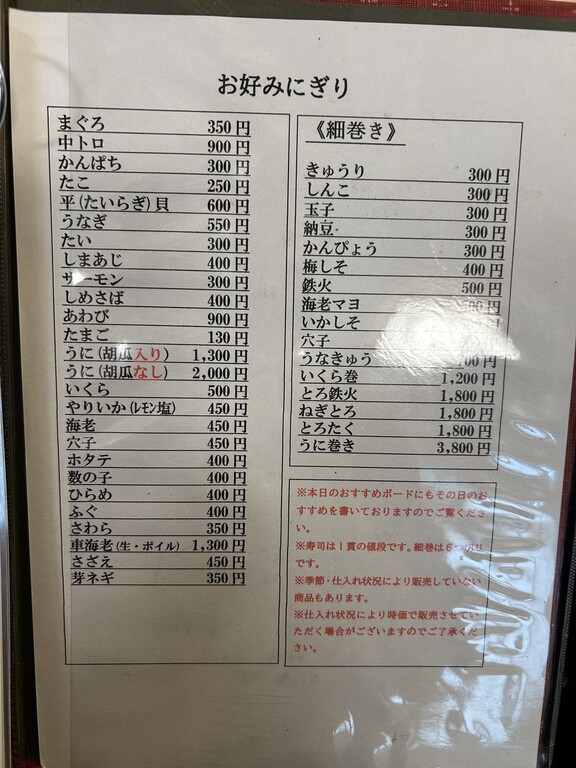 お好みにぎり
まぐろ 350円
中トロ 900円
かんぱち 300円
たこ 250円
平(たいらぎ)貝 600円
うなぎ 550円
たい 300円
しまあじ 400円
サーモン 300円
しめさば 400円
あわび 900円
たまご 130円
うに(胡瓜入り) 1,300円
うに(胡瓜なし) 2,000円
いくら 500円
やりいか(レモン塩) 450円
海老 450円
穴子 450円
ホタテ 400円
数の子 400円
ひらめ 400円
ふぐ 400円
さわら 350円
車海老(生・ボイル) 1,300円
さざえ 450円
芽ネギ 350円
《細巻き》
きゅうり 300円
しんこ 300円
玉子 300円
納豆 300円
かんぴょう 300円
梅しそ 400円
鉄火 500円
海老マヨ 円
いかしそ 円
穴子 円
うなきゅう 円
いくら巻 1,200円
とろ鉄火 1,800円
ねぎとろ 1,800円
とろたく 1,800円
うに巻き 3,800円
※本日のおすすめボードにもその日のお
すすめを書いておりますのでご覧くださ
い。
※寿司は1貫の値段です。細巻は6つ切り
です。
※季節・仕入れ状況により販売していない
商品もあります。
※仕入れ状況により時価で販売させてい
ただく場合がございますのでご了承くだ
さい。